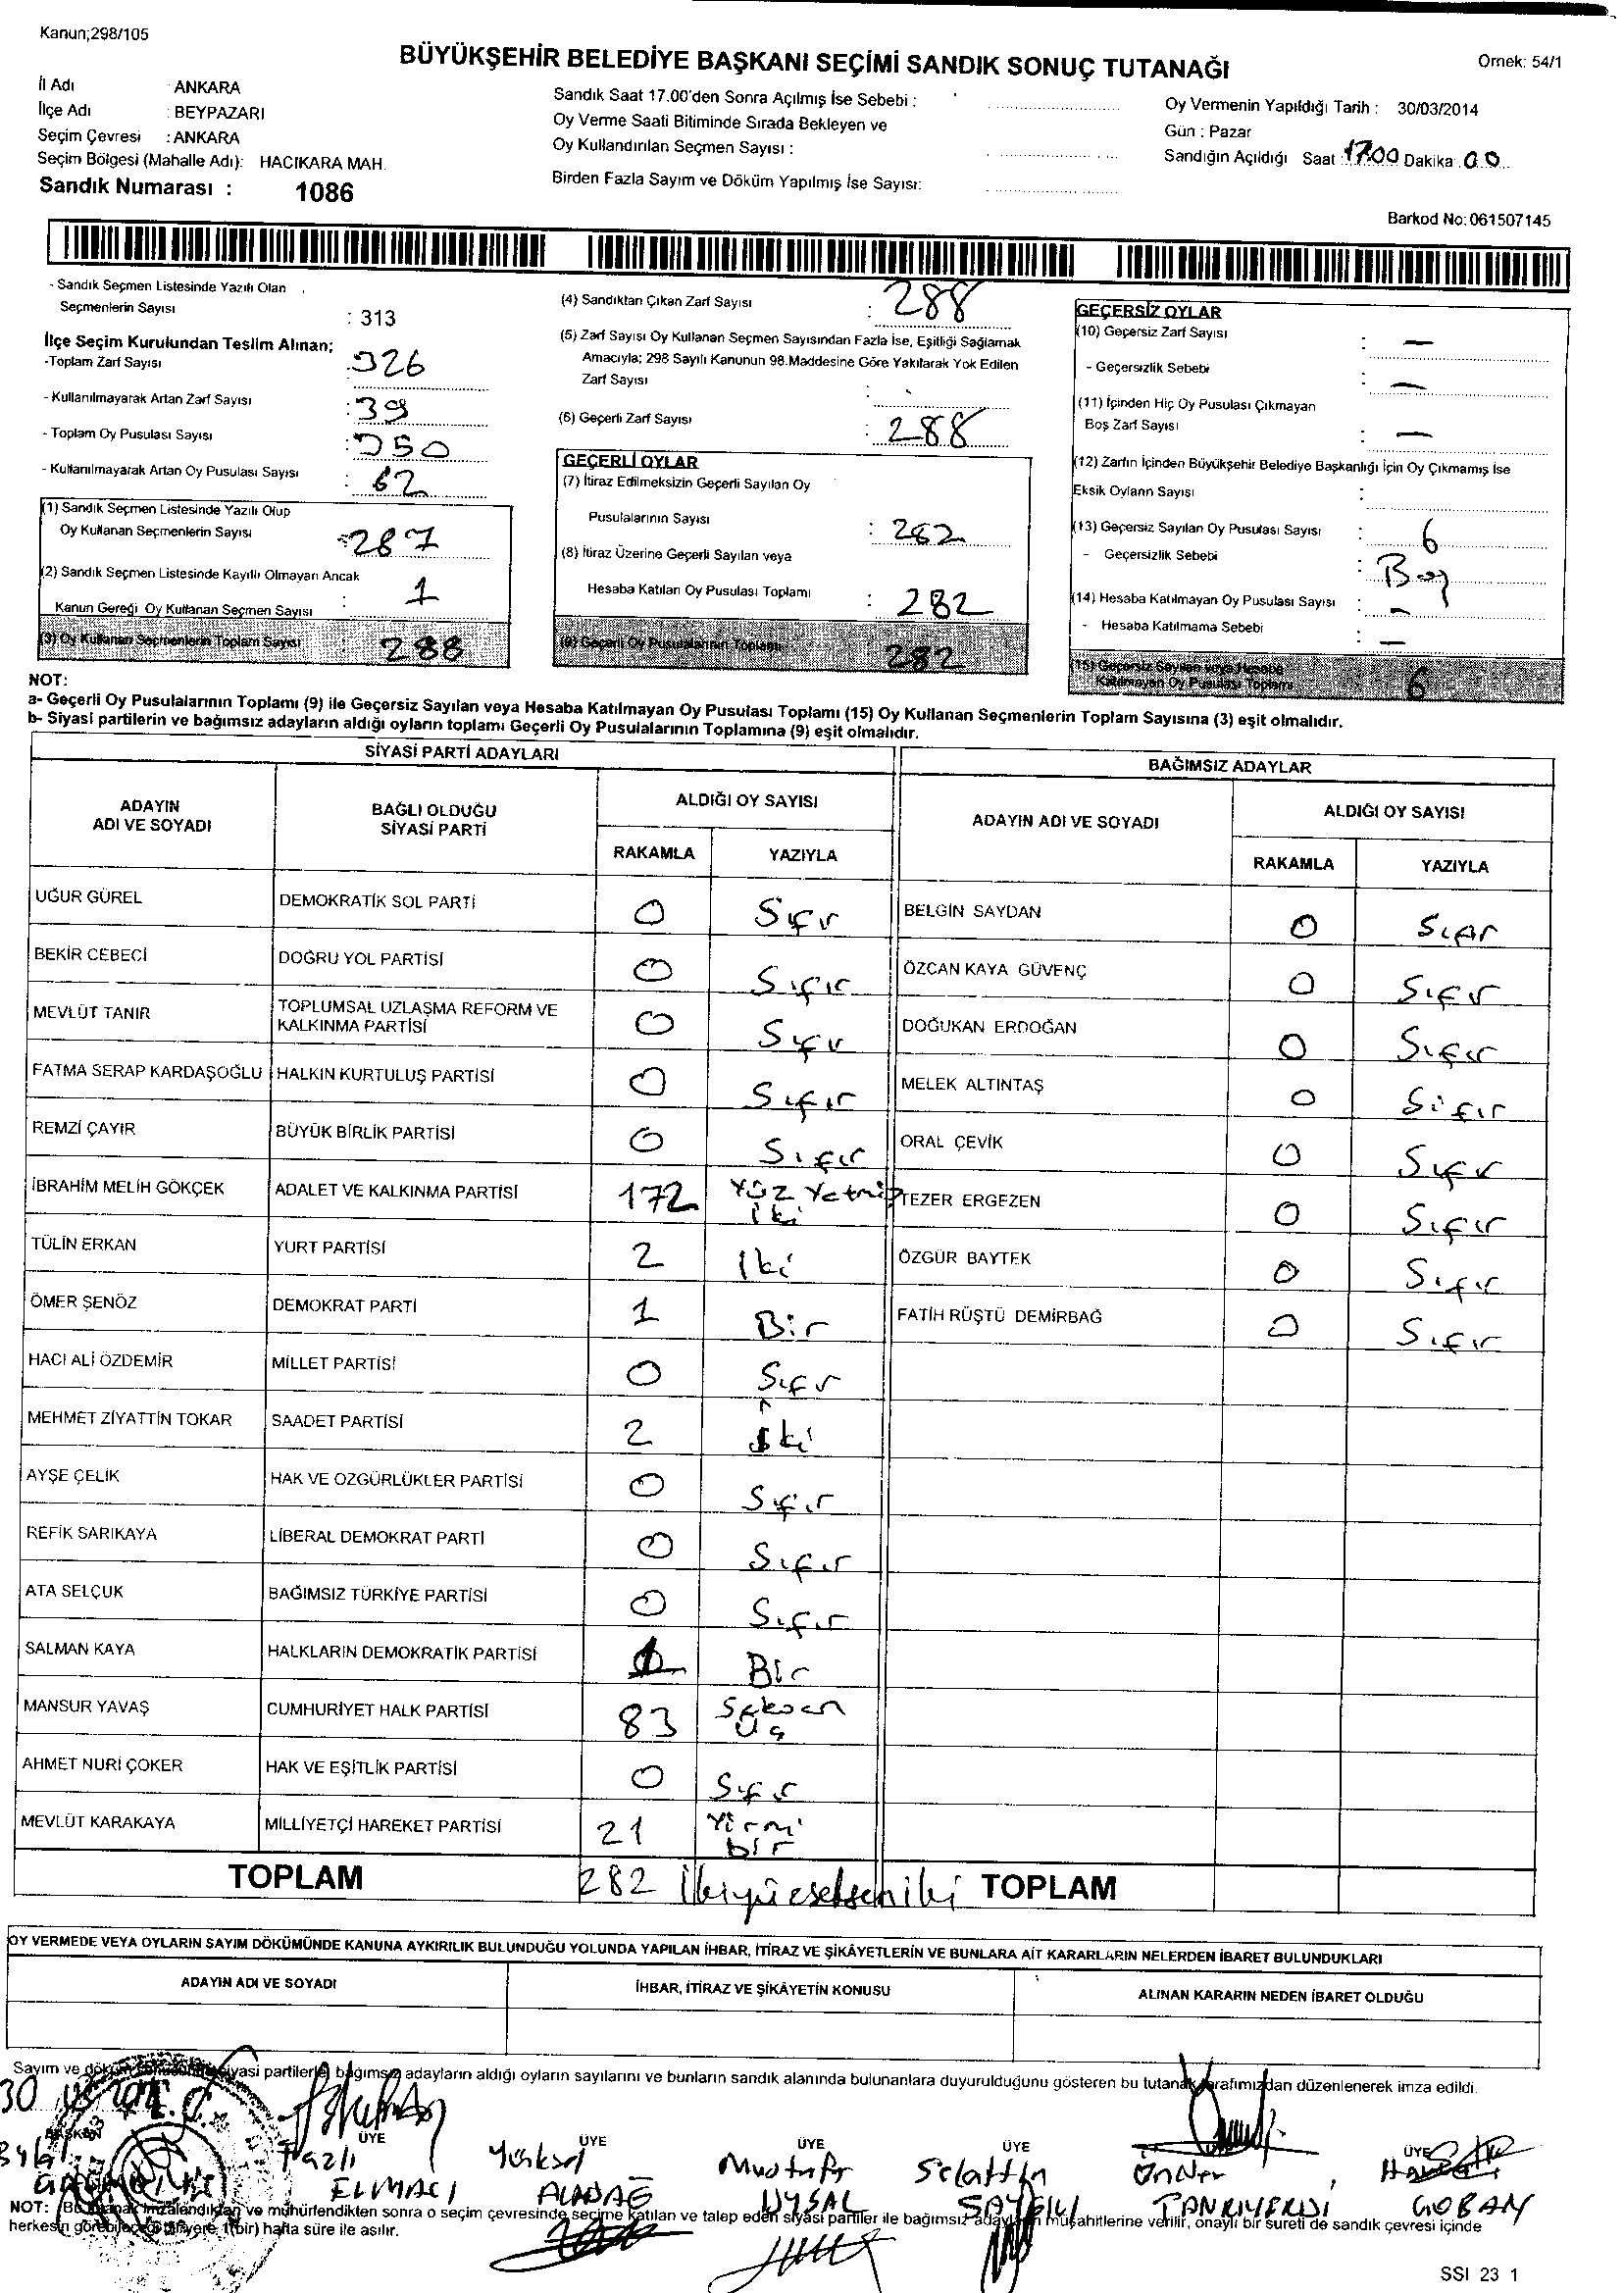 Kanun;298/105
BÜYÜKŞEHİR BELEDİYE BAŞKANI SEÇİMİ SANDIK SONUÇ TUTANAĞI
Ornek: 54/1
İl Adı : ANKARA
İlçe Adı : BEYPAZARI
Seçim Çevresi : ANKARA
Seçim Bölgesi (Mahalle Adı): HACIKARA MAH.
Sandık Numarası : 1086
Sandık Saat 17.00'den Sonra Açılmış İse Sebebi :
Oy Verme Saati Bitiminde Sırada Bekleyen ve
Oy Kullandırılan Seçmen Sayısı :
Birden Fazla Sayım ve Döküm Yapılmış İse Sayısı:
Oy Vermenin Yapıldığı Tarih : 30/03/2014
Gün : Pazar
Sandığın Açıldığı Saat : 17.00 Dakika : 00
Barkod No: 061507145
- Sandık Seçmen Listesinde Yazılı Olan
Seçmenlerin Sayısı : 313
İlçe Seçim Kurulundan Teslim Alınan;
-Toplam Zarf Sayısı : 326
- Kullanılmayarak Artan Zarf Sayısı : 39
- Toplam Oy Pusulası Sayısı : 350
- Kullanılmayarak Artan Oy Pusulası Sayısı : 62
(1) Sandık Seçmen Listesinde Yazılı Olup
Oy Kullanan Seçmenlerin Sayısı : 287
(2) Sandık Seçmen Listesinde Kayıtlı Olmayan Ancak
Kanun Gereği Oy Kullanan Seçmen Sayısı : 1
(3) Oy Kullanan Seçmenlerin Toplam Sayısı : 288
(4) Sandıktan Çıkan Zarf Sayısı : 288
(5) Zarf Sayısı Oy Kullanan Seçmen Sayısından Fazla İse, Eşitliği Sağlamak
Amacıyla; 298 Sayılı Kanunun 98.Maddesine Göre Yakılarak Yok Edilen
Zarf Sayısı :
(6) Geçerli Zarf Sayısı : 288
GEÇERLİ OYLAR
(7) İtiraz Edilmeksizin Geçerli Sayılan Oy
Pusulalarının Sayısı : 282
(8) İtiraz Üzerine Geçerli Sayılan veya
Hesaba Katılan Oy Pusulası Toplamı : 282
(9) Geçerli Oy Pusulalarının Toplamı 282
GEÇERSİZ OYLAR
(10) Geçersiz Zarf Sayısı : —
- Geçersizlik Sebebi : —
(11) İçinden Hiç Oy Pusulası Çıkmayan
Boş Zarf Sayısı : —
(12) Zarfın İçinden Büyükşehir Belediye Başkanlığı İçin Oy Çıkmamış İse
Eksik Oyların Sayısı :
(13) Geçersiz Sayılan Oy Pusulası Sayısı : 6
- Geçersizlik Sebebi : Boş
(14) Hesaba Katılmayan Oy Pusulası Sayısı : —
- Hesaba Katılmama Sebebi : —
(15) Geçersiz Sayılan veya Hesaba
Katılmayan Oy Pusulası Toplamı 6
NOT:
a- Geçerli Oy Pusulalarının Toplamı (9) ile Geçersiz Sayılan veya Hesaba Katılmayan Oy Pusulası Toplamı (15) Oy Kullanan Seçmenlerin Toplam Sayısına (3) eşit olmalıdır.
b- Siyasi partilerin ve bağımsız adayların aldığı oyların toplamı Geçerli Oy Pusulalarının Toplamına (9) eşit olmalıdır.
SİYASİ PARTİ ADAYLARI
ADAYIN ADI VE SOYADI BAĞLI OLDUĞU SİYASİ PARTİ ALDIĞI OY SAYISI
RAKAMLA YAZIYLA
UĞUR GÜREL DEMOKRATİK SOL PARTİ 0 Sıfır
BEKİR CEBECİ DOĞRU YOL PARTİSİ 0 Sıfır
MEVLÜT TANIR TOPLUMSAL UZLAŞMA REFORM VE KALKINMA PARTİSİ 0 Sıfır
FATMA SERAP KARDAŞOĞLU HALKIN KURTULUŞ PARTİSİ 0 Sıfır
REMZİ ÇAYIR BÜYÜK BİRLİK PARTİSİ 0 Sıfır
İBRAHİM MELİH GÖKÇEK ADALET VE KALKINMA PARTİSİ 172 Yüz Yetmiş iki
TÜLİN ERKAN YURT PARTİSİ 2 İki
ÖMER ŞENÖZ DEMOKRAT PARTİ 1 Bir
HACI ALİ ÖZDEMİR MİLLET PARTİSİ 0 Sıfır
MEHMET ZİYATTİN TOKAR SAADET PARTİSİ 2 İki
AYŞE ÇELİK HAK VE ÖZGÜRLÜKLER PARTİSİ 0 Sıfır
REFİK SARIKAYA LİBERAL DEMOKRAT PARTİ 0 Sıfır
ATA SELÇUK BAĞIMSIZ TÜRKİYE PARTİSİ 0 Sıfır
SALMAN KAYA HALKLARIN DEMOKRATİK PARTİSİ 1 Bir
MANSUR YAVAŞ CUMHURİYET HALK PARTİSİ 83 Seksen Üç
AHMET NURİ ÇOKER HAK VE EŞİTLİK PARTİSİ 0 Sıfır
MEVLÜT KARAKAYA MİLLİYETÇİ HAREKET PARTİSİ 21 Yirmi bir
TOPLAM 282 İkiyüzseksen iki
BAĞIMSIZ ADAYLAR
ADAYIN ADI VE SOYADI ALDIĞI OY SAYISI
RAKAMLA YAZIYLA
BELGİN SAYDAN 0 Sıfır
ÖZCAN KAYA GÜVENÇ 0 Sıfır
DOĞUKAN ERDOĞAN 0 Sıfır
MELEK ALTINTAŞ 0 Sıfır
ORAL ÇEVİK 0 Sıfır
TEZER ERGEZEN 0 Sıfır
ÖZGÜR BAYTEK 0 Sıfır
FATİH RÜŞTÜ DEMİRBAĞ 0 Sıfır
TOPLAM
OY VERMEDE VEYA OYLARIN SAYIM DÖKÜMÜNDE KANUNA AYKIRILIK BULUNDUĞU YOLUNDA YAPILAN İHBAR, İTİRAZ VE ŞİKÂYETLERİN VE BUNLARA AİT KARARLARIN NELERDEN İBARET BULUNDUKLARI
ADAYIN ADI VE SOYADI İHBAR, İTİRAZ VE ŞİKÂYETİN KONUSU ALINAN KARARIN NEDEN İBARET OLDUĞU
Sayım ve siyasi partilerle bağımsız adayların aldığı oyların sayılarını ve bunların sandık alanında bulunanlara duyurulduğunu gösteren bu tutanak tarafımızdan düzenlenerek imza edildi.
30
BAŞKAN ÜYE ÜYE ÜYE ÜYE ÜYE
Nazlı Yüksel Mustafa Selattin Önder
ELMACI ALADAĞ UYSAL SAYGILI TANRIVERDİ ÇOBAN
NOT: Bu tutanak imzalandıktan ve mühürlendikten sonra o seçim çevresinde seçime katılan ve talep eden siyasi partiler ile bağımsız adayların müşahitlerine verilir, onaylı bir sureti de sandık çevresi içinde
herkesin görebileceği bir yere 1(bir) hafta süre ile asılır.
SSI 23 1